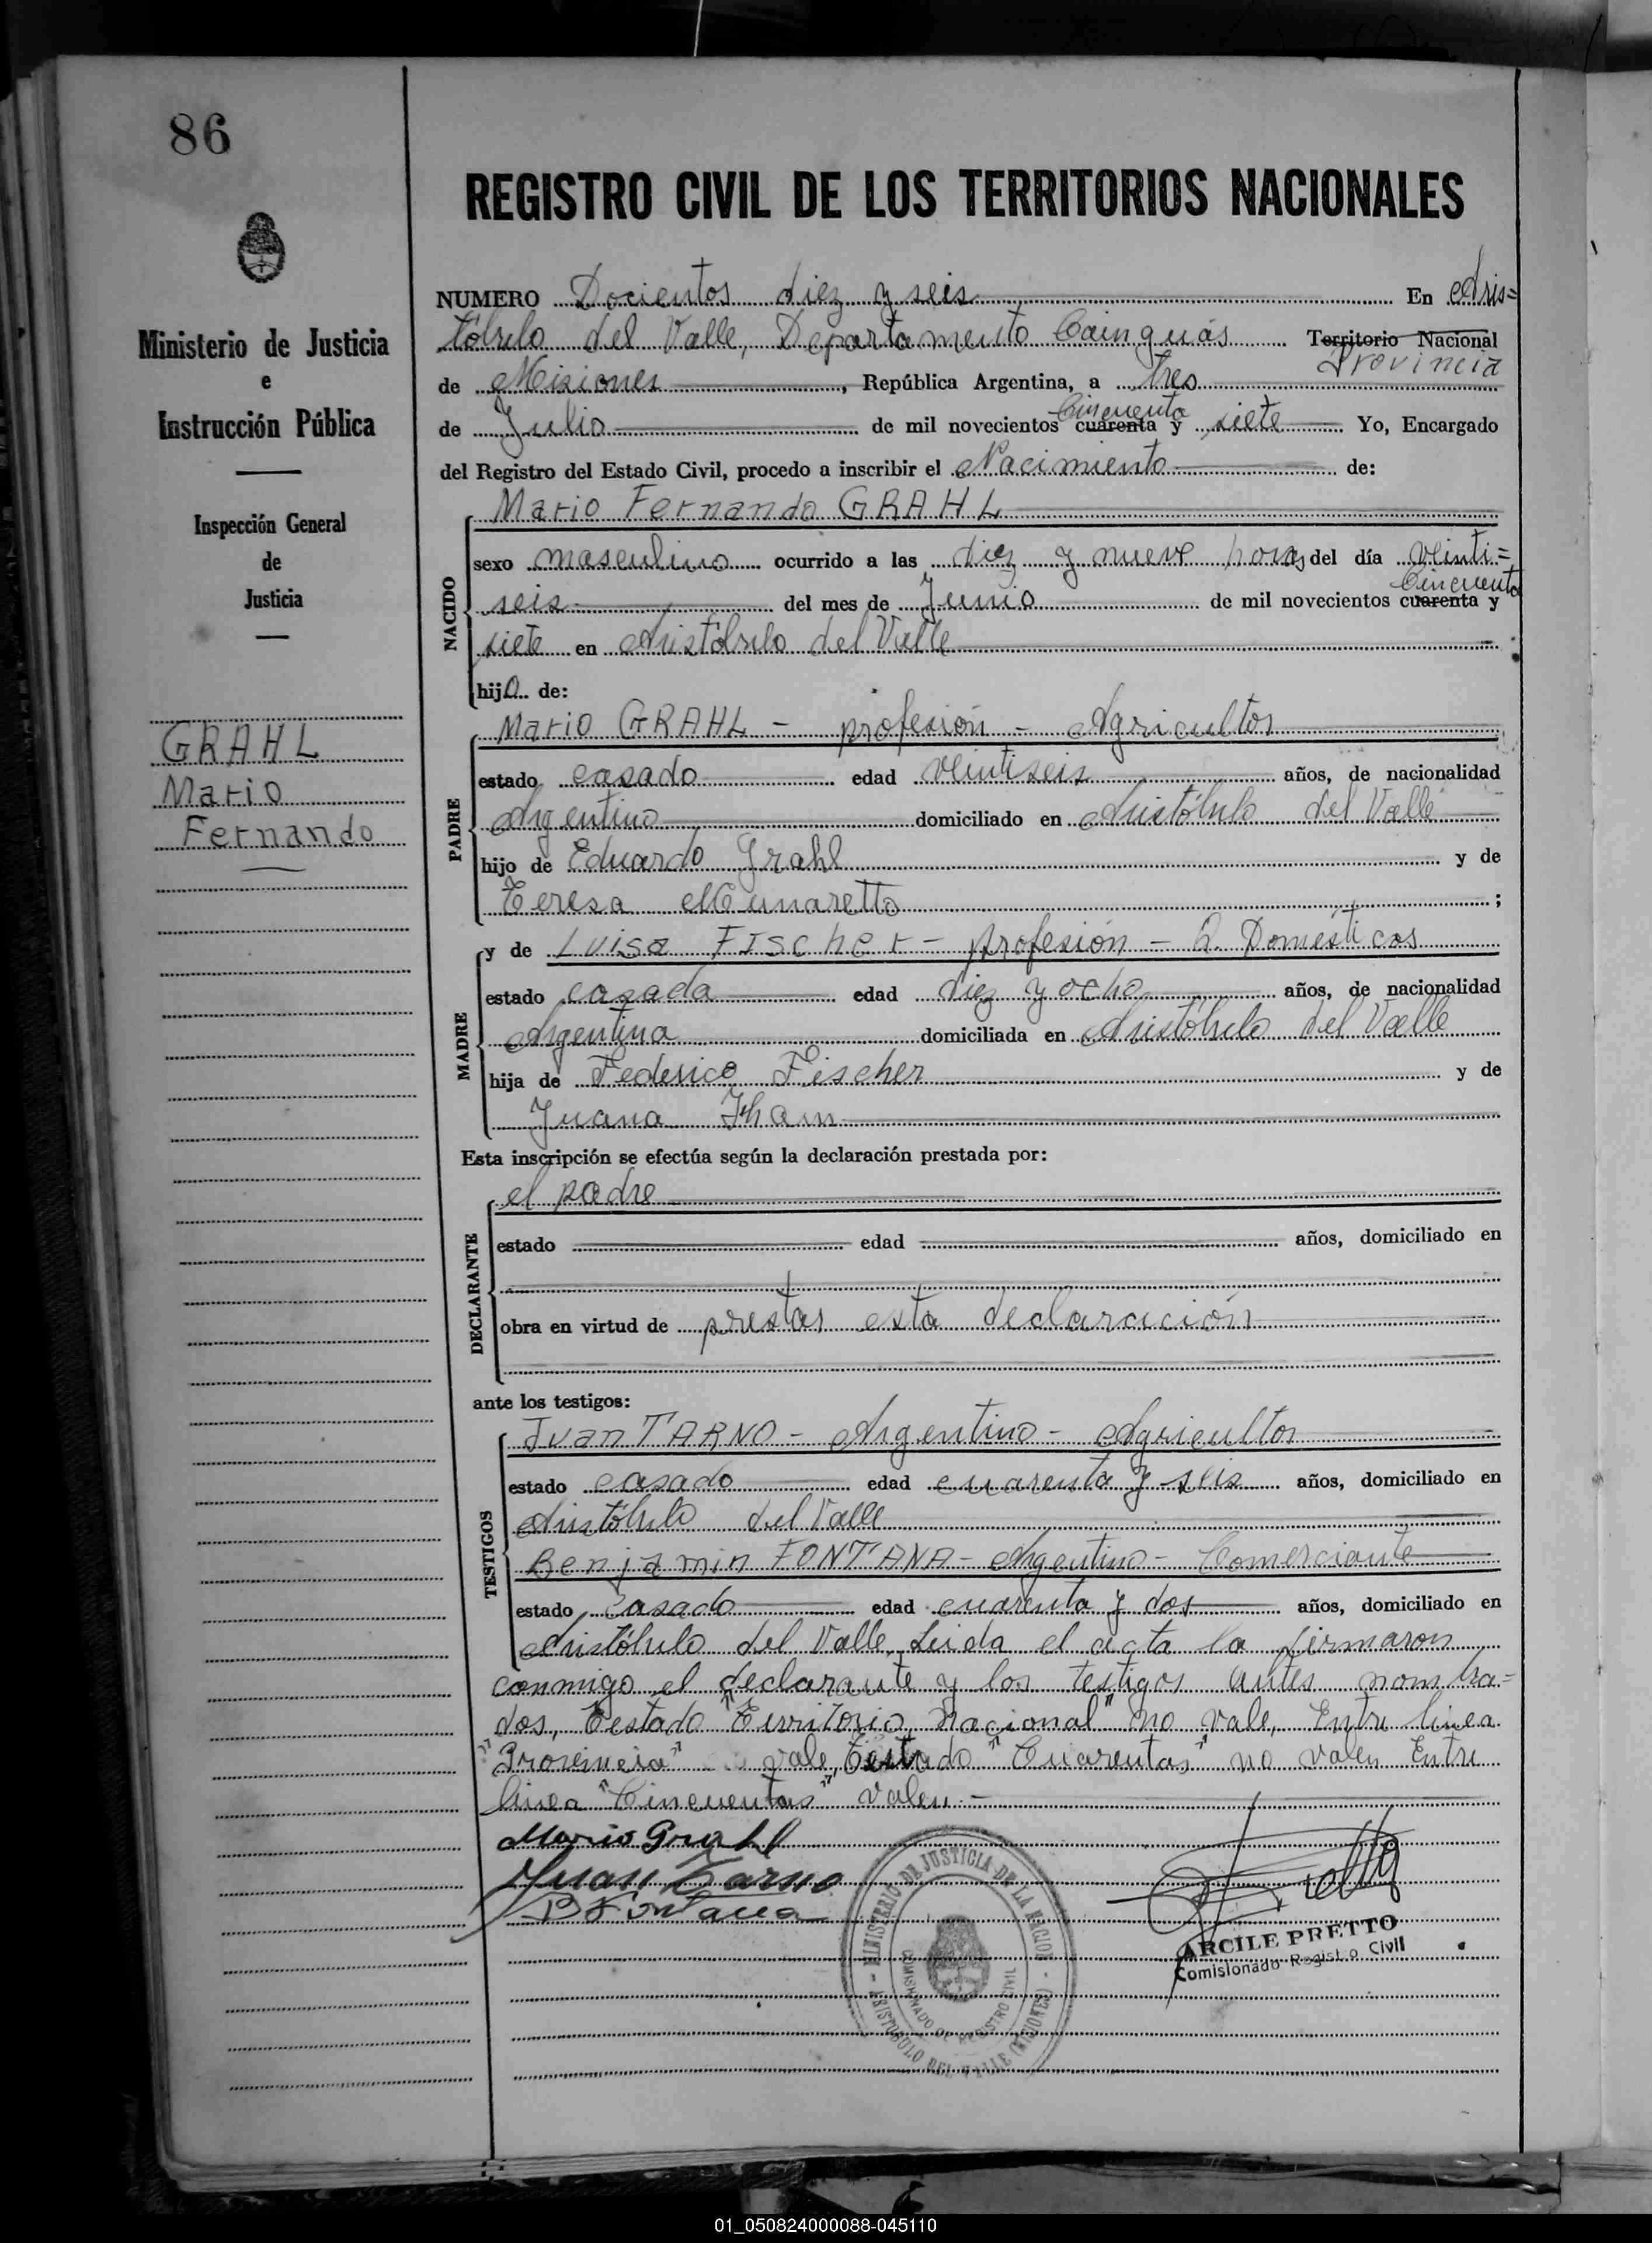 86
Ministerio de Justicia
e
Instrucción Pública
Inspección General
de
Justicia
GRAHL
Mario
Fernando
REGISTRO CIVIL DE LOS TERRITORIOS NACIONALES
NUMERO Docientos diez y seis En Aris=
tóbulo del Valle, Departamento Cainguás Territorio Nacional
Provincia
de Misiones, República Argentina, a tres
Cincuenta
de Julio de mil novecientos cuarenta y siete Yo, Encargado
del Registro del Estado Civil, procedo a inscribir el Nacimiento de:
Mario Fernando GRAHL
NACIDO
sexo masculino ocurrido a las diez y nueve horas del día veinti=
Cincuenta
seis del mes de Junio de mil novecientos cuarenta y
siete en Aristóbulo del Valle
hijo de:
Mario GRAHL - profesión - Agricultor
PADRE
estado casado edad veintiseis años, de nacionalidad
Argentino domiciliado en Aristóbulo del Valle
hijo de Eduardo Grahl y de
Teresa ;
y de Luisa FIScher - profesión - Q. Domésticos
MADRE
estado casada edad diez y ocho años, de nacionalidad
Argentina domiciliada en Aristóbulo del Valle
hija de Federico Fischer y de
Juana
Esta inscripción se efectúa según la declaración prestada por:
el padre
DECLARANTE
estado edad años, domiciliado en
obra en virtud de prestar esta declaración
ante los testigos:
Juan TARNO - Argentino - Agricultor
TESTIGOS
estado casado edad cuarenta y seis años, domiciliado en
Aristóbulo del Valle
Benjamin FONTANA - Argentino - Comerciante
estado casado edad cuarenta y dos años, domiciliado en
Aristóbulo del Valle. Leida el acta la firmaron
conmigo el declarante y los testigos antes nombra=
dos, Testado "Territorio Nacional" no vale, Entre linea
"Provincia" vale, Testado "Cuarentas" no valen Entre
linea "Cincuentas" valen.-
Mario Grahl
Juan Tarno
B Fontana
MINISTERIO DE JUSTICIA DE LA NACION
COMISIONADO DE REGISTRO CIVIL
ARISTOBULO DEL VALLE (MISIONES)
ARCILE PRETTO
Comisionado Registro Civil
01_050824000088-045110